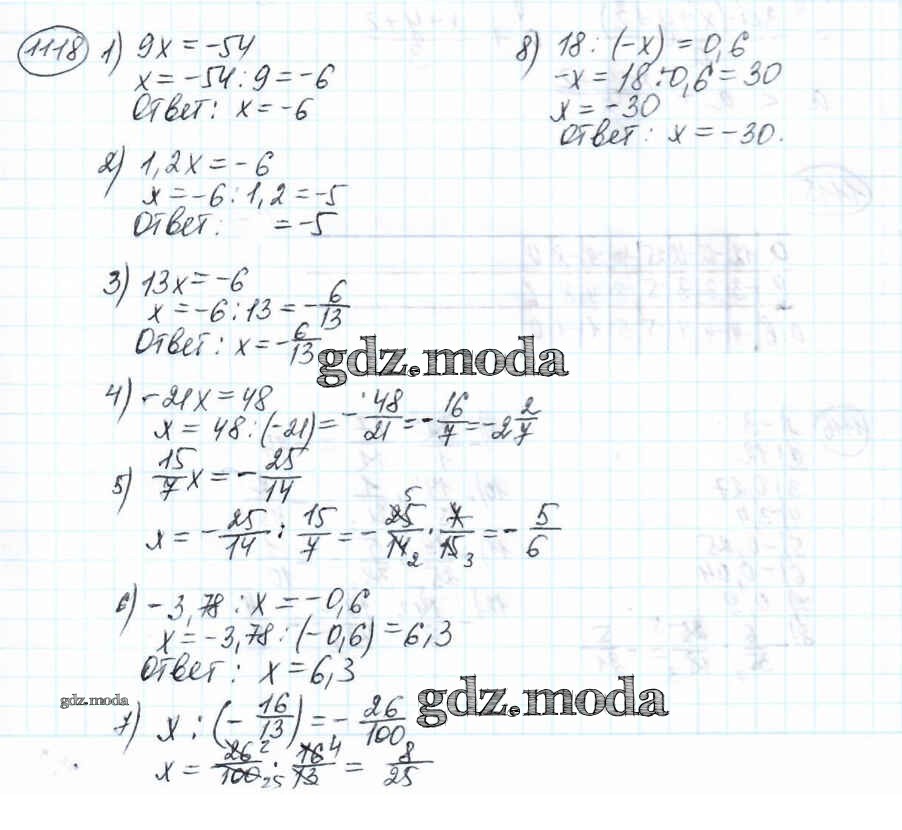 1118 1) 9x = -54
x = -54 : 9 = -6
Ответ: x = -6
2) 1,2x = -6
x = -6 : 1,2 = -5
Ответ: = -5
3) 13x = -6
x = -6 : 13 = -6/13
Ответ: x = -6/13
gdz.moda
4) -21x = 48
x = 48 : (-21) = -48/21 = -16/7 = -2 2/7
5) 15/7 x = -25/14
x = -25/14 : 15/7 = -25 5/14 2 · 7/15 3 = -5/6
6) -3,78 : x = -0,6
x = -3,78 : (-0,6) = 6,3
Ответ: x = 6,3
gdz.moda
gdz.moda
7) x : (-16/13) = -26/100
x = 26 2/100 25 · 16 4/13 = 8/25
8) 18 : (-x) = 0,6
-x = 18 : 0,6 = 30
x = -30
Ответ: x = -30.